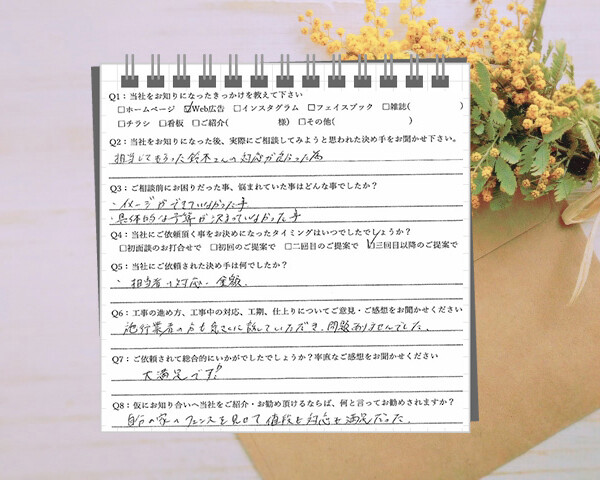 Q1：当社をお知りになったきっかけを教えて下さい
□ホームページ ☑Web広告 □インスタグラム □フェイスブック □雑誌( )
□チラシ □看板 □ご紹介( 様) □その他( )
Q2：当社をお知りになった後、実際にご相談してみようと思われた決め手をお聞かせ下さい。
担当してもらった鈴木さんの対応が良かった為
Q3：ご相談前にお困りだった事、悩まれていた事はどんな事でしたか？
・イメージができていなかった事
・具体的な予算が決まっていなかった事
Q4：当社にご依頼頂く事をお決めになったタイミングはいつでしたでしょうか？
□初面談のお打合せで □初回のご提案で □二回目のご提案で ☑三回目以降のご提案で
Q5：当社にご依頼された決め手は何でしたか？
・担当者の対応、金額
Q6：工事の進め方、工事中の対応、工期、仕上りについてご意見・ご感想をお聞かせください
施行業者の方も気さくに話していただき、問題ありませんでした。
Q7：ご依頼されて総合的にいかがでしたでしょうか？率直なご感想をお聞かせください
大満足です!!
Q8：仮にお知り合いへ当社をご紹介・お勧め頂けるならば、何と言ってお勧めされますか？
自分の家のフェンスを見せて値段も対応も満足だった。